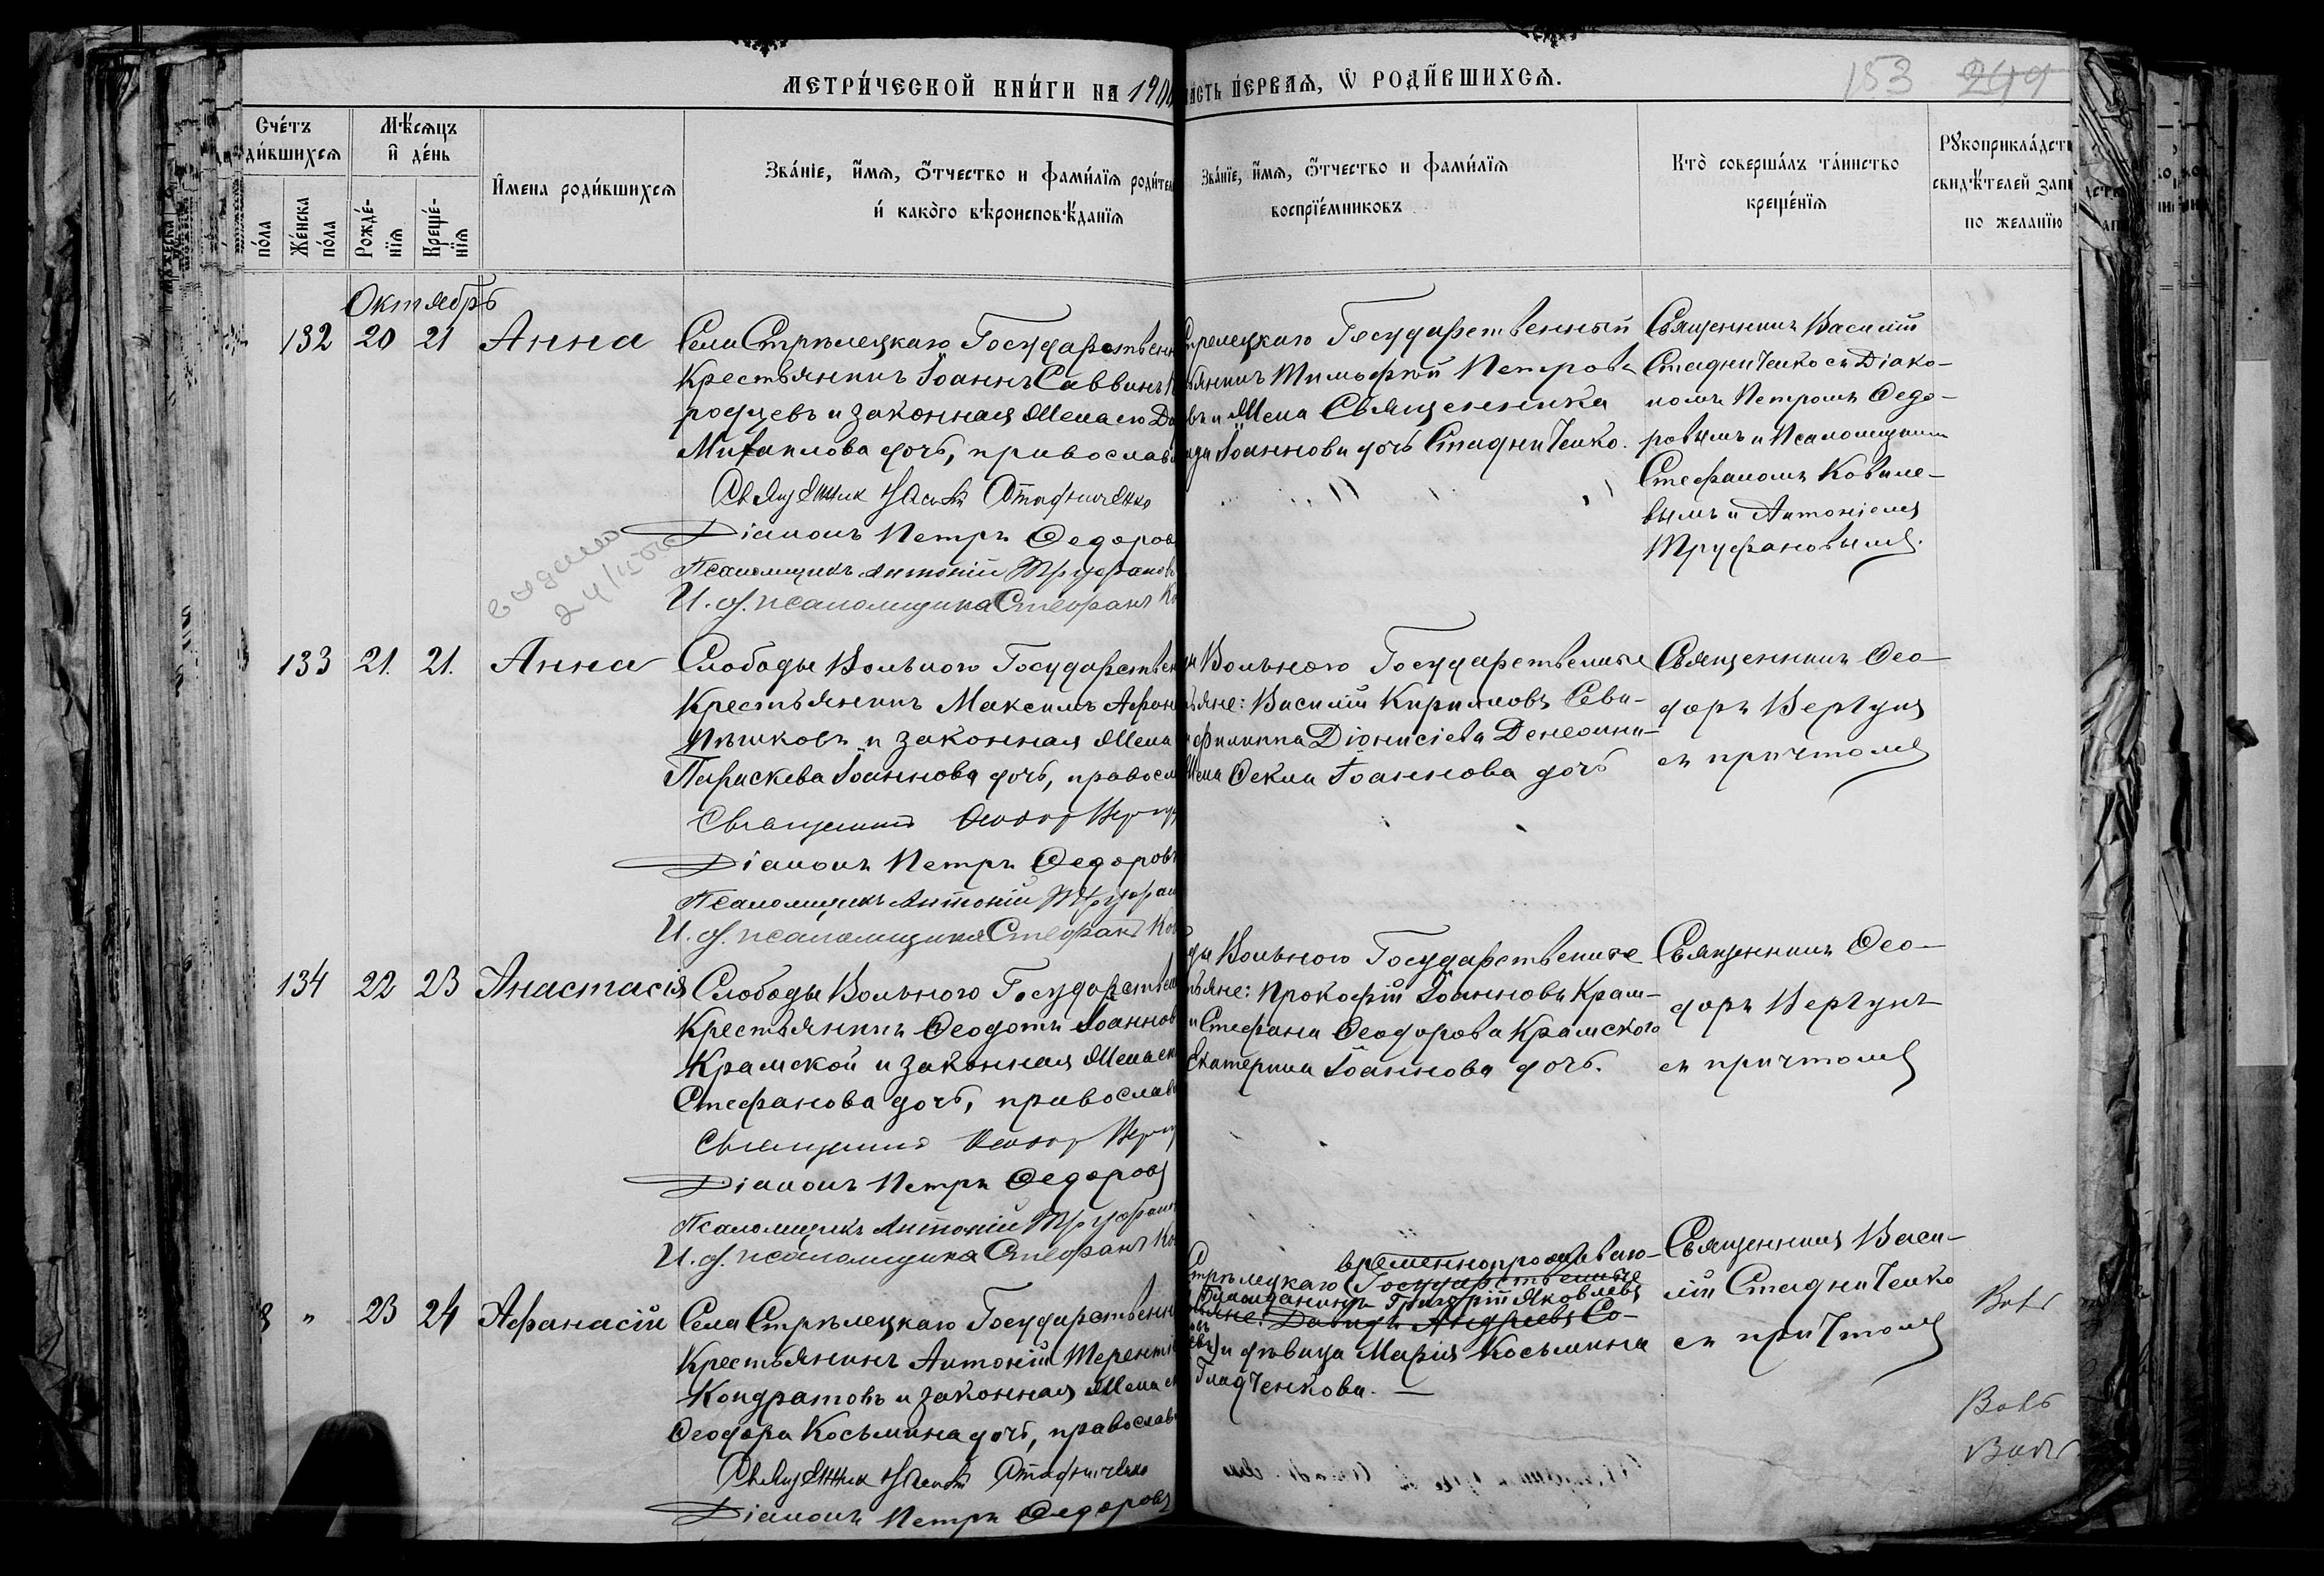 МЕТРИ́ЧЕСКОЙ КНИ́ГИ НА 190
ЧАСТЬ ПЕ́РВАЯ, Ѡ РОДИ́ВШИХСЯ.
153 249
Сче́тъ
ди́вшихся
по́ла
Же́нска
по́ла
Мѣ́сяцъ
и де́нь
Рожде́-
нїя
Креще́-
нїя
И́мена роди́вшихся
Зва́нїе, и́мя, ѻ́тчество и фами́лїя роди́тел
и како́го вѣроисповѣ́данїя
Зва́нїе, и́мя, ѻ́тчество и фами́лїя
воспрїе́мниковъ
Кто̀ соверша́лъ та́инство
креще́нїя
Рꙋкоприкла́дст
свидѣ́телей запи
по жела́нїю
Октябрь
132 20 21 Анна
Села Стрѣлецкаго Государственн
Крестьянинъ Іоаннъ Саввинъ
родцевъ и законная жена его
Михаилова дочь, православ
Священник Василій Стадниченко
Діаконъ Петръ Федоров
Псаломщикъ Антоній Труфанов
И. д. псаломщика Стефанъ Ко
24/
Стрелецкаго Государственный
янинъ Тимофей Петров
въ и жена Священника
Іоаннова дочь Стадниченко.
Священникъ Василій
Стадниченко съ Діако-
номъ Петромъ Федо-
ровымъ и Псаломщиком
Стефаномъ Ковале-
вымъ и Антоніемъ
Труфановымъ.
133 21. 21. Анна
Слободы Вольного Государствен
Крестьянинъ Максимъ Афан
Пѣшковъ и законная жена
Параскева Іоаннова дочь, правосл
Священникъ Феодор Вергун
Діаконъ Петръ Федоровъ
Псаломщикъ Антоній Труфан
И. д. псаломщика Стефанъ Ков
ды Вольного Государственные
яне: Василій Кирилловъ Сева-
Филиппа Діонисіева
жена Фекла Іоаннова дочь
Священникъ Фео-
доръ Вергунъ
съ причтомъ
134 22 23 Анастасія
Слободы Вольного Государствен
Крестьянинъ Феодотъ Іоаннов
Крамской и законная жена его
Стефанова дочь, православ
Священникъ Феодор Вергу
Діаконъ Петръ Федоровъ
Псаломщикъ Антоній Труфан
И. д. псаломщика Стефанъ Ко
ды Вольного Государственные
яне: Прокофій Іоанновъ Крам-
и Стефана Феодорова Крамского
Екатерина Іоаннова дочь.
Священникъ Фео-
доръ Вергунъ
съ причтомъ
8 " 23 24 Афанасій
Села Стрѣлецкаго Государственн
Крестьянинъ Антоній Терентіе
Кондратовъ и законная жена
Феодора Косьмина дочь, православ
Священник Василій Стадниченко
Діаконъ Петръ Федоровъ
временнопроживаю-
Стрѣлецкаго (Государственные
Гражданинъ Григорій Яковлевъ
яне: Давидъ Андреевъ Со-
и дѣвица Марія Косьмина
Гладченкова. —
Священникъ Васи-
лій Стадниченко
съ причтомъ